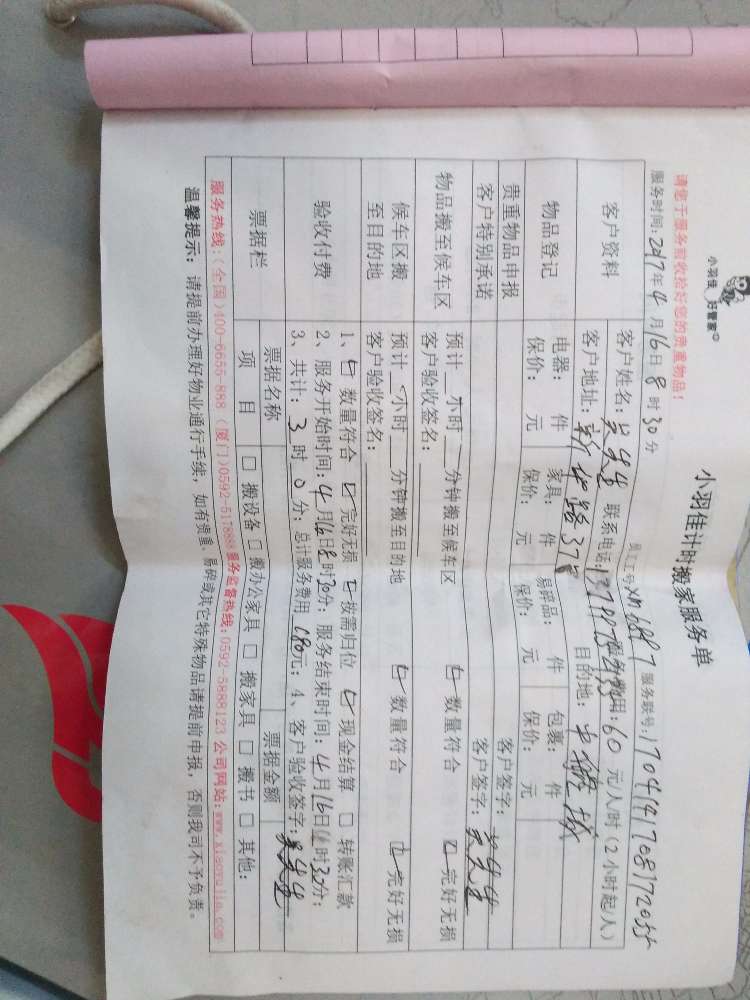 小羽佳 好管家
小羽佳计时搬家服务单
请您于服务前收拾好您的贵重物品！
员工号 服务联号:
服务时间: 2017年4月16日8时30分 服务费用: 60元/人/时(2小时起/人)
客户资料
客户姓名: 吴先生 联系电话:
客户地址: 新华路37号 目的地:
物品登记
电器: 件 家具: 件 易碎品: 件 包裹: 件
保价: 元 保价: 元 保价: 元 保价: 元
贵重物品申报 客户签字:
客户特别承诺 客户签字: 吴先生
物品搬至候车区
预计 小时 分钟搬至候车区 ☑ 数量符合 ☑ 完好无损
客户验收签名:
候车区搬至目的地
预计 小时 分钟搬至目的地 ☑ 数量符合 ☑ 完好无损
客户验收签名:
验收付费
1、☑ 数量符合 ☑ 完好无损 ☑ 按需归位 ☑ 现金结算 □ 转账汇款
2、服务开始时间: 4月16日8时30分; 服务结束时间: 4月16日11时30分;
3、共计: 3时0分; 总计服务费用 680元; 4、客户验收签字: 吴先生
票据栏
票据名称 票据金额
项 目 □ 搬设备 □ 搬办公家具 □ 搬家具 □ 搬书 □ 其他:
服务热线:(全国)400-6655-888 (厦门)0592-5178888 服务监督热线:0592-5888123 公司网站:www.xiaoyujia.com
温馨提示: 请提前办理好物业通行手续, 如有贵重、易碎或其它特殊物品请提前申报, 否则我司不予负责。